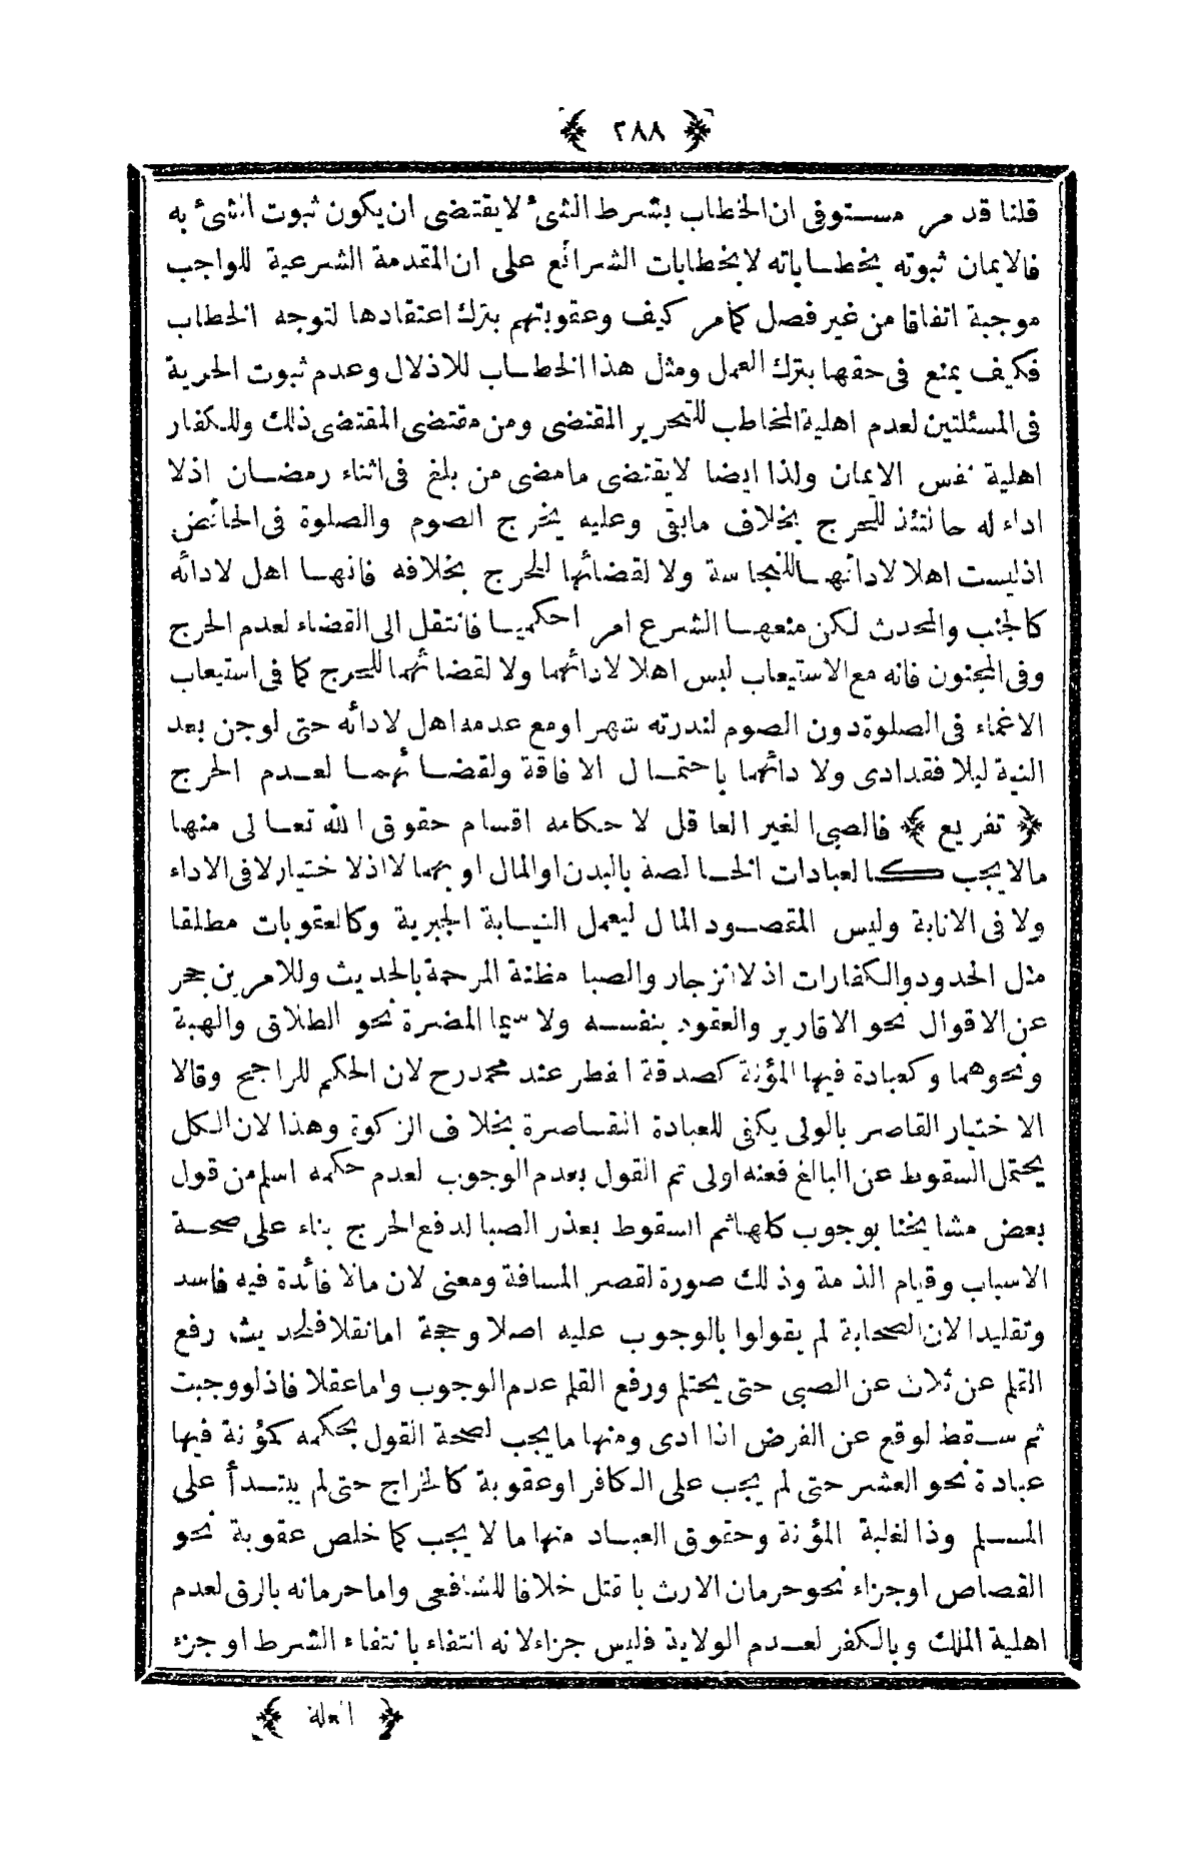 ﴿ ٢٨٨ ﴾
قلنا قد مر مستوفى ان الخطاب بشرط الشئ لا يقتضى ان يكون ثبوت الشئ به
فالايمان ثبوته بخطاباته لا بخطابات الشرائع على ان المقدمة الشرعية للواجب
موجبة اتفاقا من غير فصل كما مر كيف وعقوبتهم بترك اعتقادها لتوجه الخطاب
فكيف يمنع فى حقها بترك العمل ومثل هذا الخطاب للاذلال وعدم ثبوت الحرية
فى المسئلتين لعدم اهلية المخاطب للتحرير المقتضى ومن مقتضى المقتضى ذلك وللكفار
اهلية نفس الايمان ولذا ايضا لا يقتضى ما مضى من بلغ فى اثناء رمضان اذ لا
اداء له حالتئذ للحرج بخلاف ما بقى وعليه يخرج الصوم والصلوة فى الحائض
اذ ليست اهلا لادائها للنجاسة ولا لقضائها للحرج بخلافه فانها اهل لادائه
كالجنب والمحدث لكن منعها الشرع امر احكميا فانتقل الى القضاء لعدم الحرج
وفى المجنون فانه مع الاستيعاب ليس اهلا لادائهما ولا لقضائهما للحرج كما فى استيعاب
الاغماء فى الصلوة دون الصوم لندرته شهر او مع عدمه اهل لادائه حتى لو جن بعد
النية ليلا فقد ادى ولا دائهما باحتمال الافاقة ولقضائهما لعدم الحرج
﴿ تفريع ﴾ فالصبى الغير العاقل لاحكامه اقسام حقوق الله تعالى منها
ما لا يجب كالعبادات الخالصة بالبدن او المال او بهما لا اذلا ختيار لا فى الاداء
ولا فى الانابة وليس المقصود المال ليعمل النيابة الجبرية وكالعقوبات مطلقا
مثل الحدود والكفارات اذ لا انزجار والصبا مظنة المرحمة بالحديث وللامرين حجر
عن الاقوال نحو الاقارير والعقود بنفسه ولا سيما المضرة نحو الطلاق والهبة
ونحوهما وكعبادة فيها المؤنة كصدقة الفطر عند محمد رح لان الحكم للراجح وقالا
الاختيار القاصر بالولى يكفى للعبادة القاصرة بخلاف الزكوة وهذا لان الكل
يحتمل السقوط عن البالغ فعنه اولى ثم القول بعدم الوجوب لعدم حكمه اسلم من قول
بعض مشايخنا بوجوب كلها ثم السقوط بعذر الصبا لدفع الحرج بناء على صحة
الاسباب وقيام الذمة وذلك صورة لقصر المسافة ومعنى لان مالا فائدة فيه فاسد
وتقليدا لان الصحابة لم يقولوا بالوجوب عليه اصلا وحجة اما نقلا فلحديث رفع
القلم عن ثلاث عن الصبى حتى يحتلم ورفع القلم عدم الوجوب واما عقلا فاذ لو وجبت
ثم سقط لوقع عن الفرض اذا ادى ومنها ما يجب لصحة القول بحكمه كمؤنة فيها
عبادة نحو العشر حتى لم يجب على الكافر او عقوبة كالخراج حتى لم يبتدأ على
المسلم وذا لغلبة المؤنة وحقوق العباد منها ما لا يجب كما خلص عقوبة نحو
القصاص او جزاء نحو حرمان الارث با قتل خلافا للشافعى واما حرمانه بالرق لعدم
اهلية الملك وبالكفر لعدم الولاية فليس جزاء لانه انتفاء بانتفاء الشرط او جزء
﴿ العلة ﴾